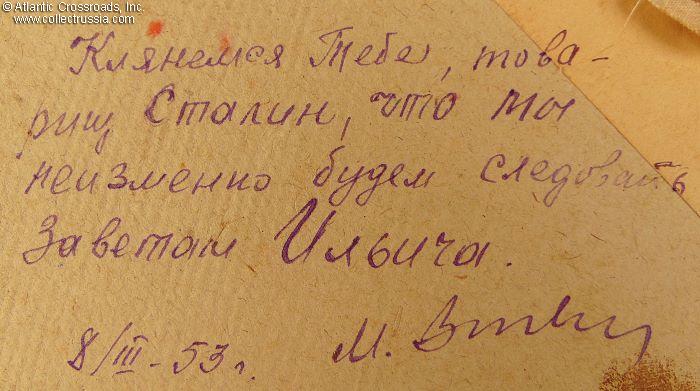 © Atlantic Crossroads, Inc.
www.collectrussia.com
Клянемся Тебе, това-
рищ Сталин, что мы
неизменно будем следовать
Заветам Ильича.
8/III-53 г. М.